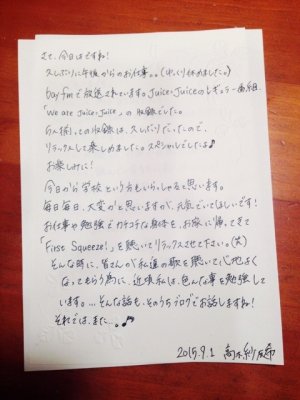 さて、今日はですね！
久しぶりに午後からのお仕事。。(ゆっくり休めました。)
bayfmで放送されています。Juice=Juiceのレギュラー番組
「We are Juice=Juice」の収録でした。
5人揃っての収録は、久しぶりだったので、
リラックスして楽しめました。スペシャルでしたよ♪
お楽しみに！
今日から学校という方もいらっしゃると思います。
毎日毎日、大変かと思いますが、元気でいてほしいです！
お仕事や勉強でカチコチな身体を、お家に帰ってきて
「First Squeeze！」を聴いてリラックスさせて下さい。(笑)
そんな時に、皆さんが私達の歌を聴いて心地よく
なってもらう為に、近頃私は、色んな事を勉強して
います。...そんな話も、そのうちブログでお話しますね！
それでは、また...。♪
2015.9.1 高木紗友希